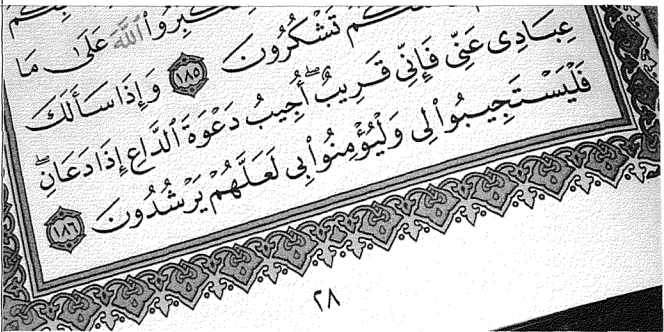 تَشْكُرُونَ ١٨٥ وَإِذَا سَأَلَكَ
عِبَادِى عَنِّى فَإِنِّى قَرِيبٌ ۖ أُجِيبُ دَعْوَةَ ٱلدَّاعِ إِذَا دَعَانِ ۖ
فَلْيَسْتَجِيبُوا۟ لِى وَلْيُؤْمِنُوا۟ بِى لَعَلَّهُمْ يَرْشُدُونَ ١٨٦
٢٨